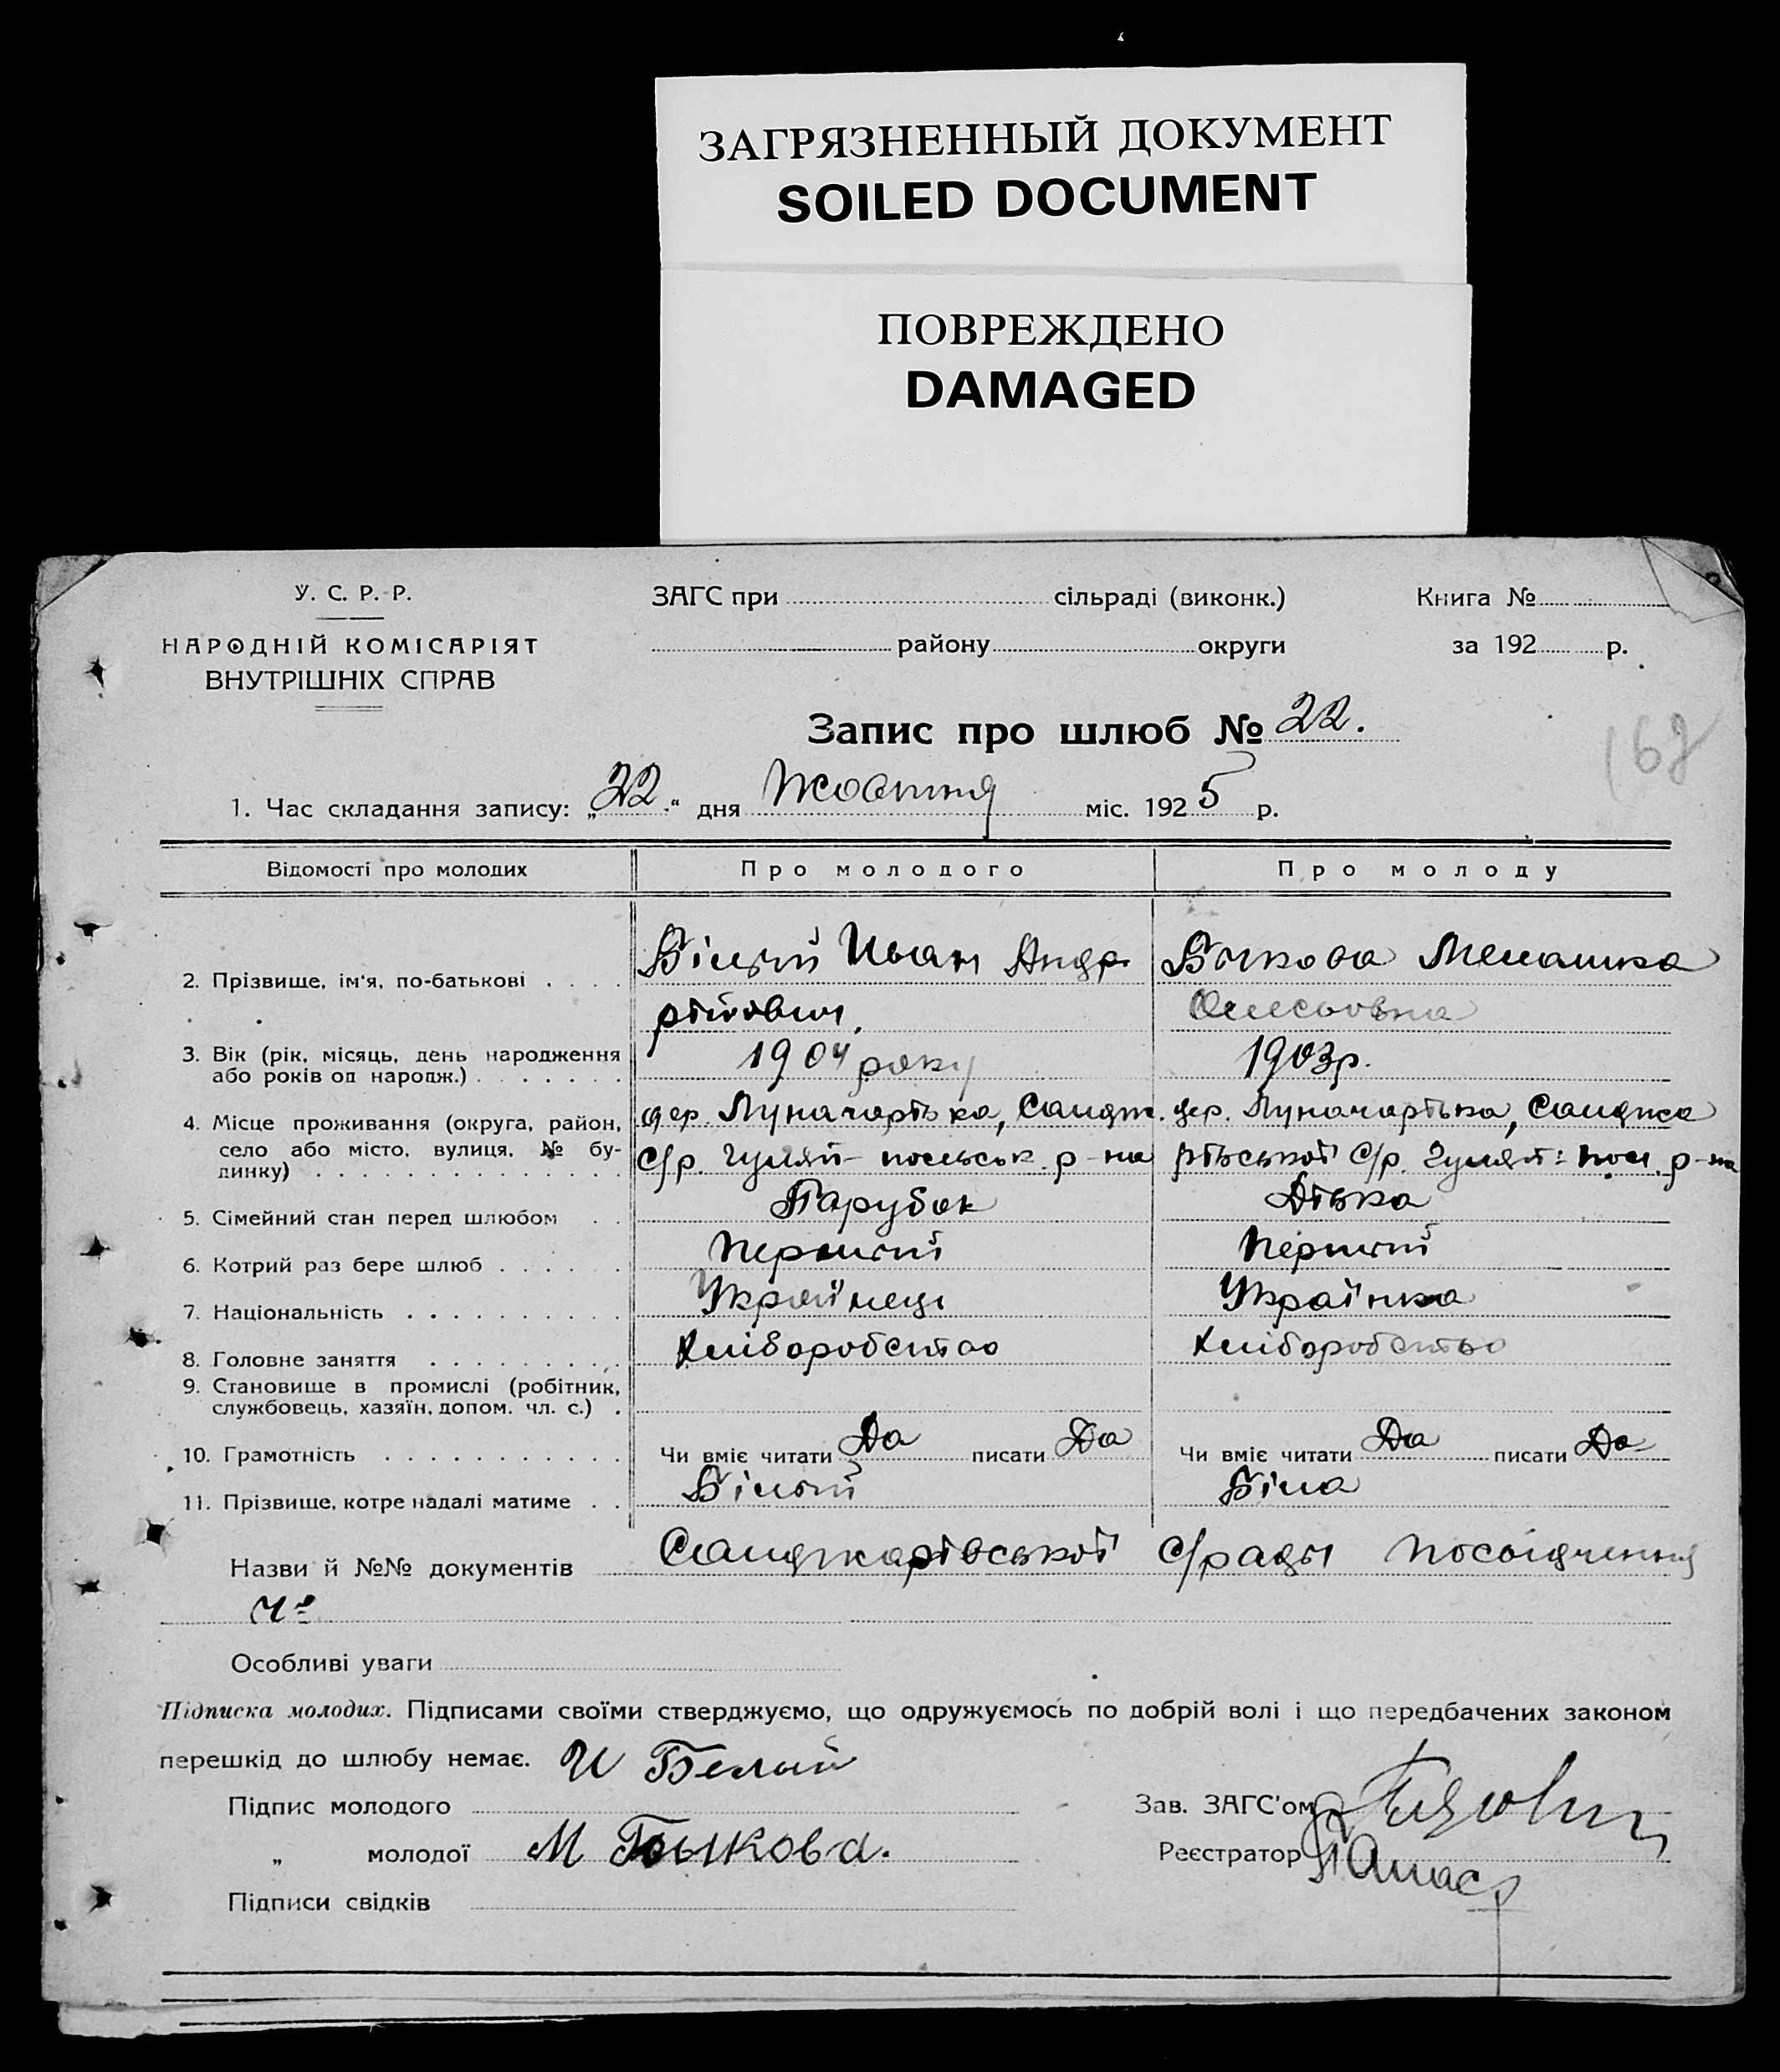 ЗАГРЯЗНЕННЫЙ ДОКУМЕНТ
SOILED DOCUMENT
ПОВРЕЖДЕНО
DAMAGED
У. С. Р. Р.
НАРОДНІЙ КОМІСАРІЯТ
ВНУТРІШНІХ СПРАВ
ЗАГС при сільраді (виконк.)
району округи
Книга №
за 192 р.
168
Запис про шлюб № 22.
1. Час складання запису: „22" дня Жовтня міс. 1925 р.
Відомості про молодих Про молодого Про молоду
2. Прізвище, ім'я, по-батькові Білый Иван Анд Бикова Мелашка
рійович. Олесьовна
3. Вік (рік, місяць, день народження або років од народж.) 1904 року 1903р.
4. Місце проживання (округа, район, село або місто, вулиця, № будинку)
дер. Луначарівка, Сандж. дер. Луначарівка, Санджа
С/р. Гуляй-польськ. р-на рівської С/р. Гуляй-пол. р-на
5. Сімейний стан перед шлюбом Парубок Дівка
6. Котрий раз бере шлюб Первый Первый
7. Національність Українець Українка
8. Головне заняття Хліборобство Хліборобство
9. Становище в промислі (робітник, службовець, хазяїн, допом. чл. с.)
10. Грамотність Чи вміє читати Да писати Да Чи вміє читати Да писати Да
11. Прізвище, котре надалі матиме Білый Біла
Назви й №№ документів Санджарівської с/рады посвідчення
Особливі уваги
Підписка молодих. Підписами своїми стверджуємо, що одружуємось по добрій волі і що передбачених законом
перешкід до шлюбу немає. И Белый
Підпис молодого
Зав. ЗАГС'ом
„ молодої М Быкова.
Реєстратор
Підписи свідків